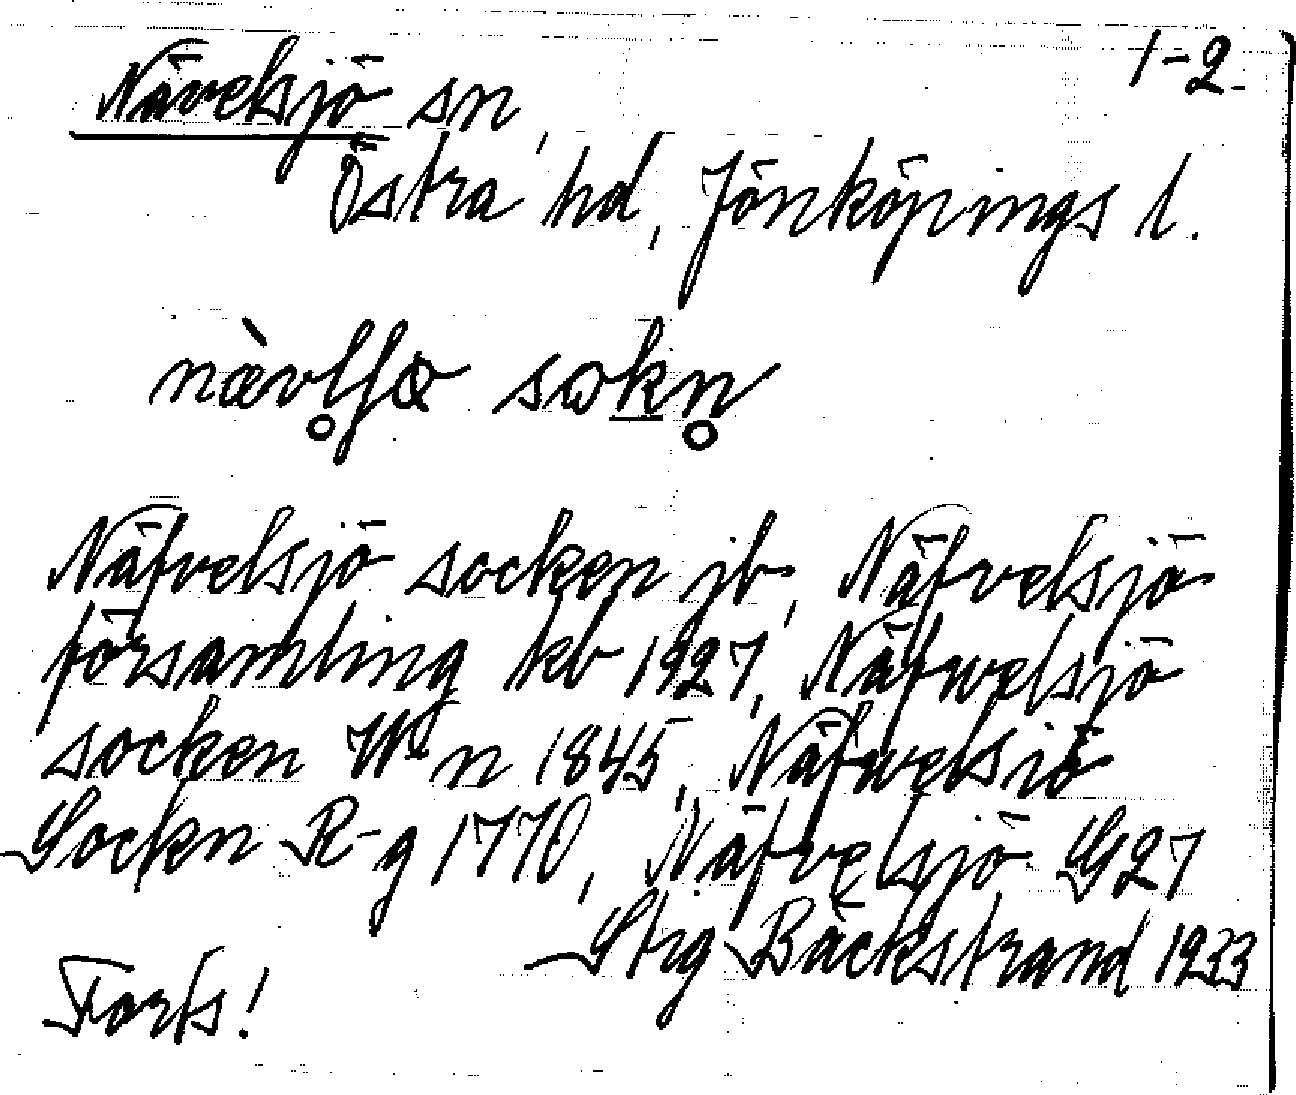 1-2.
Nävelsjö sn,
Östra hd, Jönköpings l.
nævl̥ʃɵ sɷkn̥
Näfvelsjö socken jb, Näfvelsjö
församling kb 1927, Näfwelsjö
socken W-n 1845, Näfwelsiö
Sockn R-g 1770, Näfvelsjö G27
Stig Bäckstrand 1933
Forts!